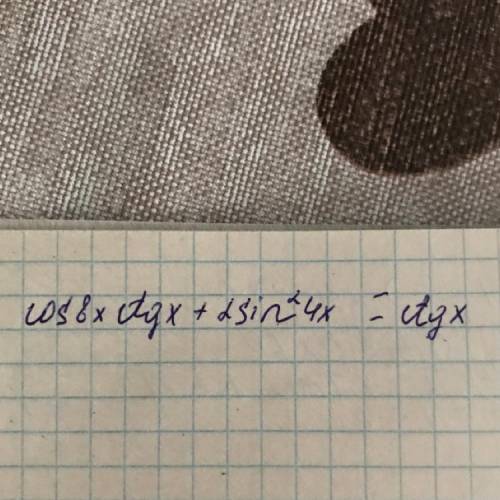 cos8x ctgx + 2sin²4x = ctgx